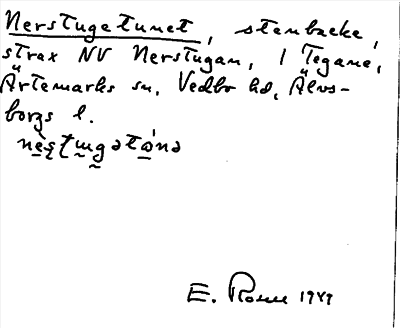 Nerstugetunet, stenbacke,
strax NV Nerstugan, i Tegane,
Ärtemarks sn, Vedbo hd, Älvs-
borgs l.
E. 1949